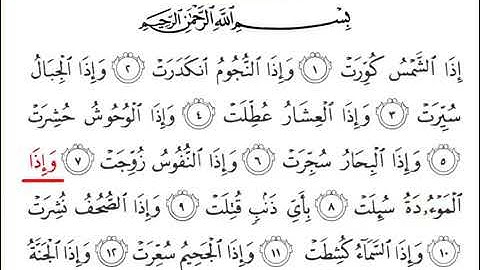 بِسْمِ ٱللَّهِ ٱلرَّحْمَٰنِ ٱلرَّحِيمِ
إِذَا ٱلشَّمْسُ كُوِّرَتْ ١ وَإِذَا ٱلنُّجُومُ ٱنكَدَرَتْ ٢ وَإِذَا ٱلْجِبَالُ
سُيِّرَتْ ٣ وَإِذَا ٱلْعِشَارُ عُطِّلَتْ ٤ وَإِذَا ٱلْوُحُوشُ حُشِرَتْ
٥ وَإِذَا ٱلْبِحَارُ سُجِّرَتْ ٦ وَإِذَا ٱلنُّفُوسُ زُوِّجَتْ ٧ وَإِذَا
ٱلْمَوْءُۥدَةُ سُئِلَتْ ٨ بِأَيِّ ذَنۢبٍ قُتِلَتْ ٩ وَإِذَا ٱلصُّحُفُ نُشِرَتْ
١٠ وَإِذَا ٱلسَّمَآءُ كُشِطَتْ ١١ وَإِذَا ٱلْجَحِيمُ سُعِّرَتْ ١٢ وَإِذَا ٱلْجَنَّةُ